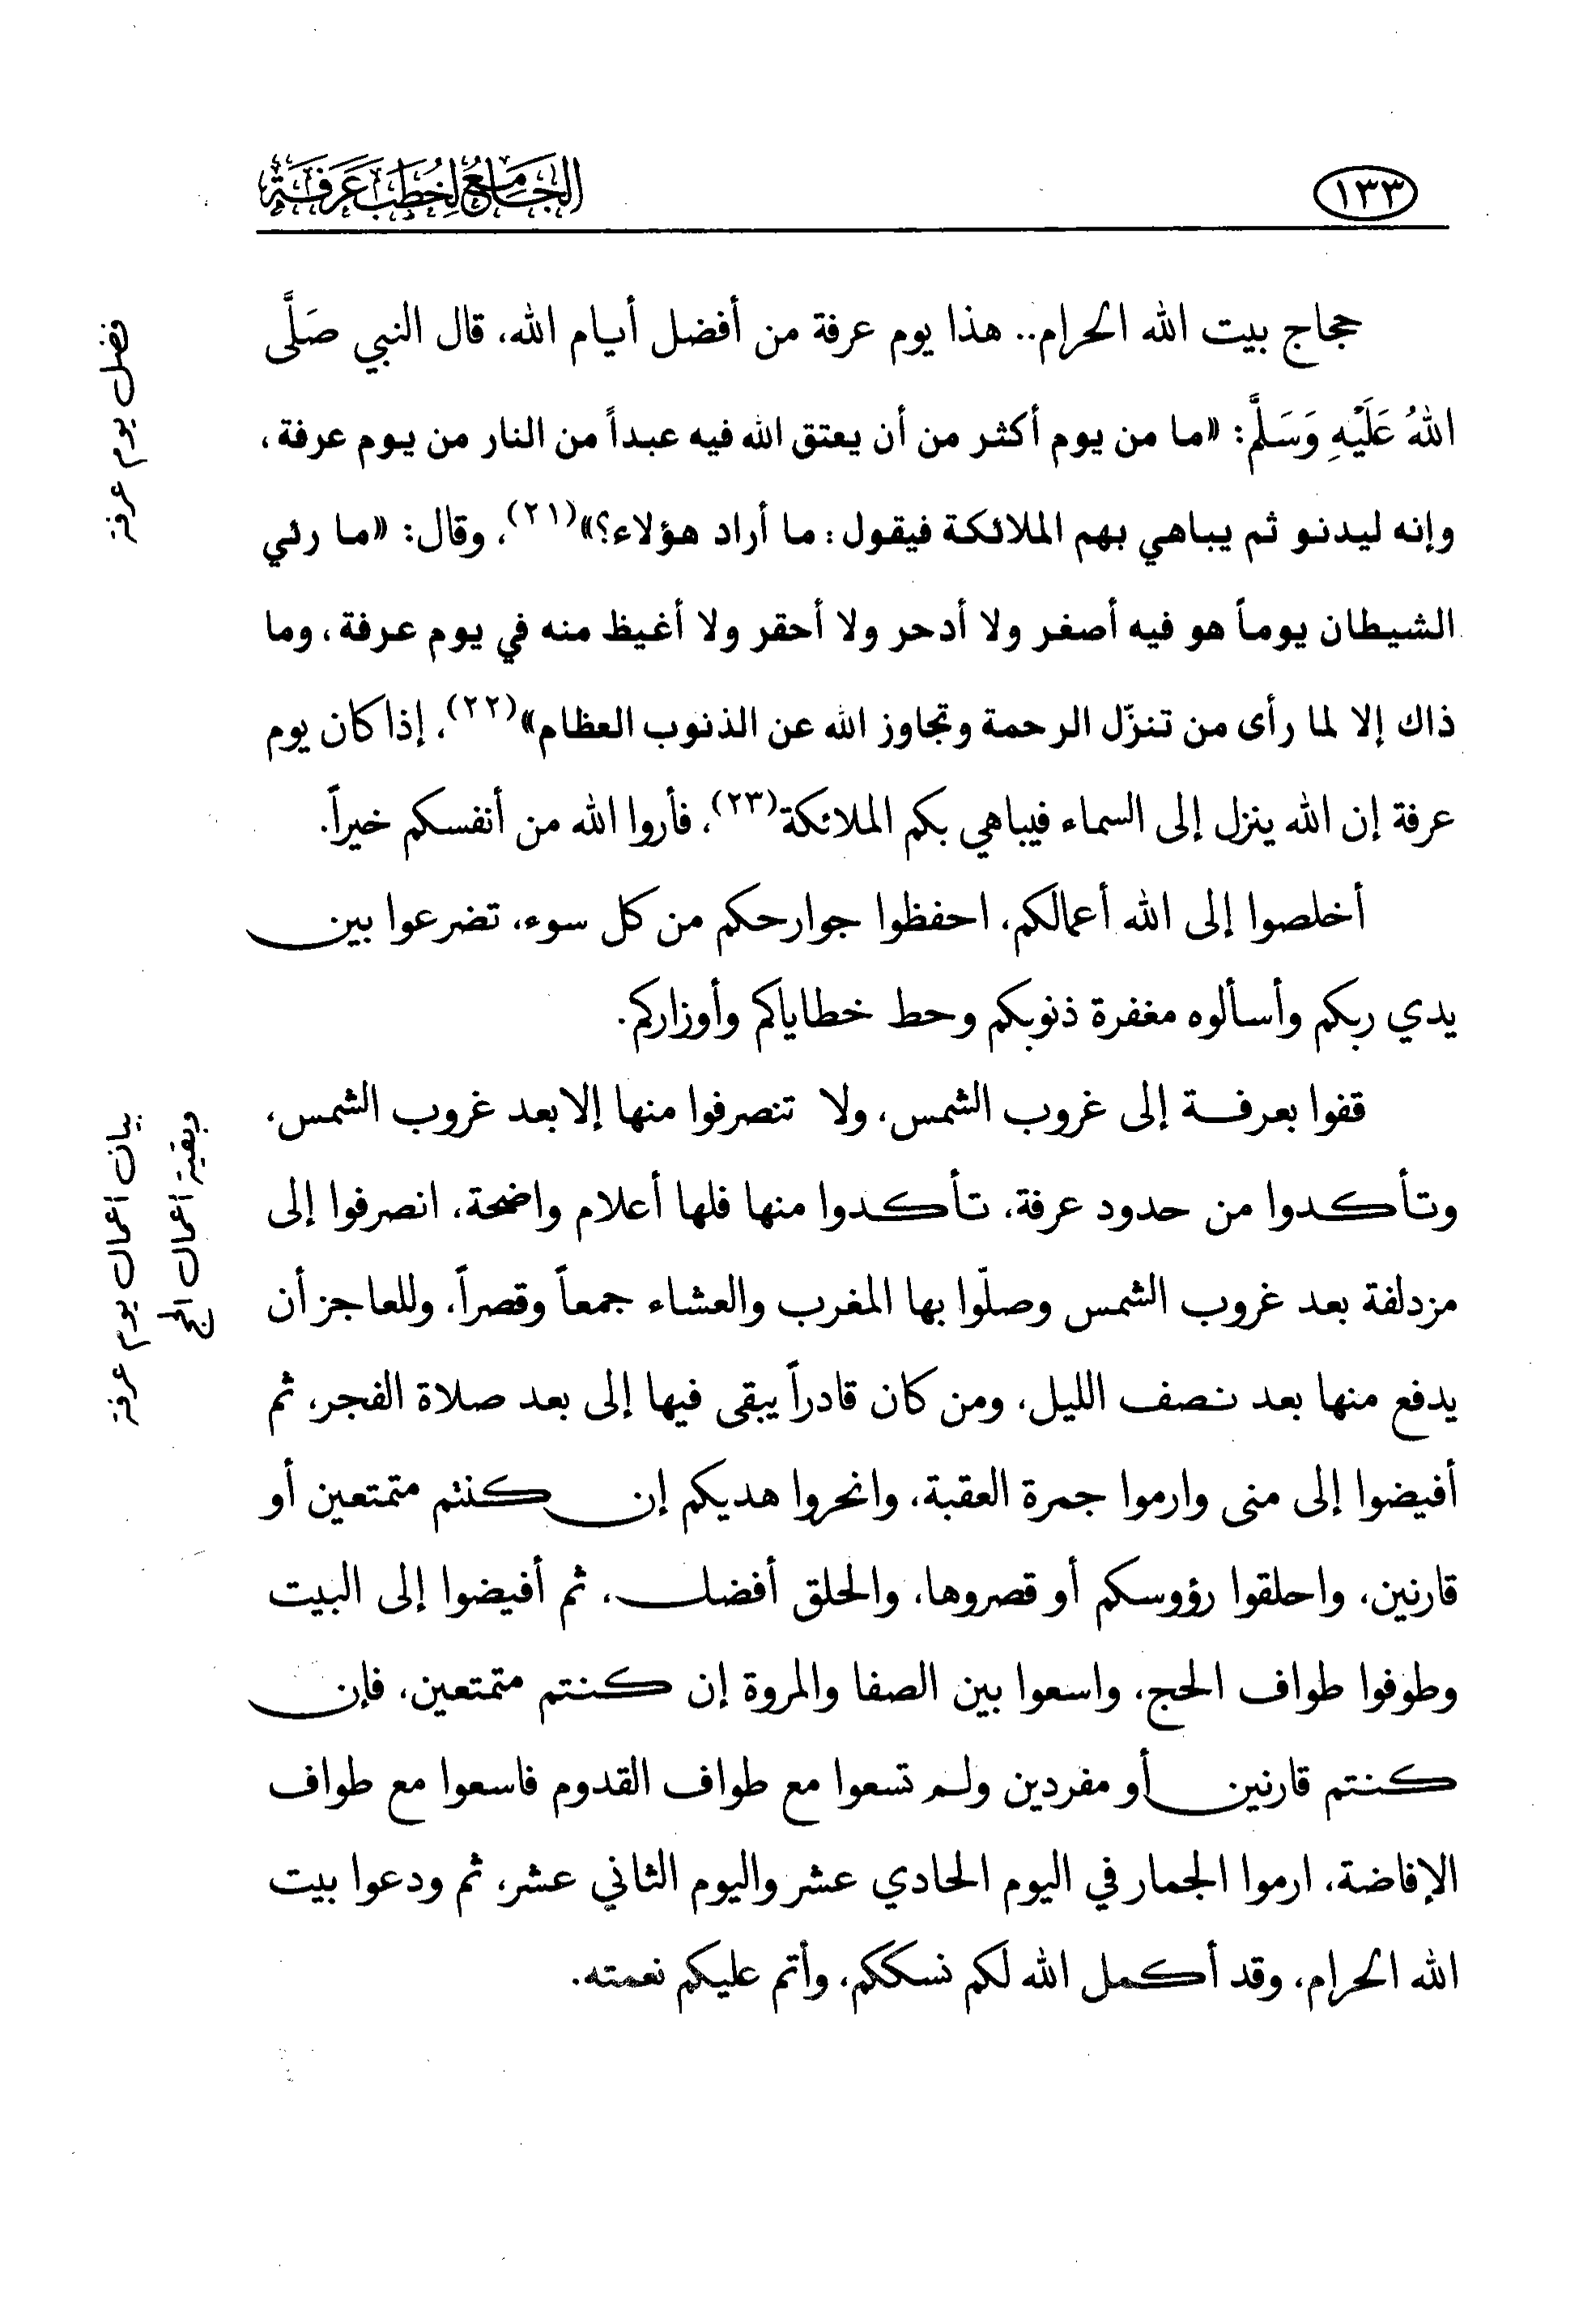 ١٣٣
الجَامِعُ لِخُطَبِ عَرَفَةَ
حجاج بيت الله الحرام.. هذا يوم عرفة من أفضل أيام الله، قال النبي صَلَّى
اللهُ عَلَيْهِ وَسَلَّمَ: «ما من يوم أكثر من أن يعتق الله فيه عبداً من النار من يوم عرفة،
وإنه ليدنو ثم يباهي بهم الملائكة فيقول: ما أراد هؤلاء؟»(٢١)، وقال: «ما رئي
الشيطان يوماً هو فيه أصغر ولا أدحر ولا أحقر ولا أغيظ منه في يوم عرفة، وما
ذاك إلا لما رأى من تنزّل الرحمة وتجاوز الله عن الذنوب العظام»(٢٢)، إذا كان يوم
عرفة إن الله ينزل إلى السماء فيباهي بكم الملائكة(٢٣)، فأروا الله من أنفسكم خيراً.
أخلصوا إلى الله أعمالكم، احفظوا جوارحكم من كل سوء، تضرعوا بين
يدي ربكم وأسألوه مغفرة ذنوبكم وحط خطاياكم وأوزاركم.
قفوا بعرفة إلى غروب الشمس، ولا تنصرفوا منها إلا بعد غروب الشمس،
وتأكدوا من حدود عرفة، تأكدوا منها فلها أعلام واضحة، انصرفوا إلى
مزدلفة بعد غروب الشمس وصلّوا بها المغرب والعشاء جمعاً وقصراً، وللعاجز أن
يدفع منها بعد نصف الليل، ومن كان قادراً يبقى فيها إلى بعد صلاة الفجر، ثم
أفيضوا إلى منى وارموا جمرة العقبة، وانحروا هديكم إن كنتم متمتعين أو
قارنين، واحلقوا رؤوسكم أو قصروها، والحلق أفضل، ثم أفيضوا إلى البيت
وطوفوا طواف الحج، واسعوا بين الصفا والمروة إن كنتم متمتعين، فإن
كنتم قارنين أو مفردين ولم تسعوا مع طواف القدوم فاسعوا مع طواف
الإفاضة، ارموا الجمار في اليوم الحادي عشر واليوم الثاني عشر، ثم ودعوا بيت
الله الحرام، وقد أكمل الله لكم نسككم، وأتم عليكم نعمته.
فضل يوم عرفة
بيان أعمال يوم عرفة
وبقية أعمال الحج